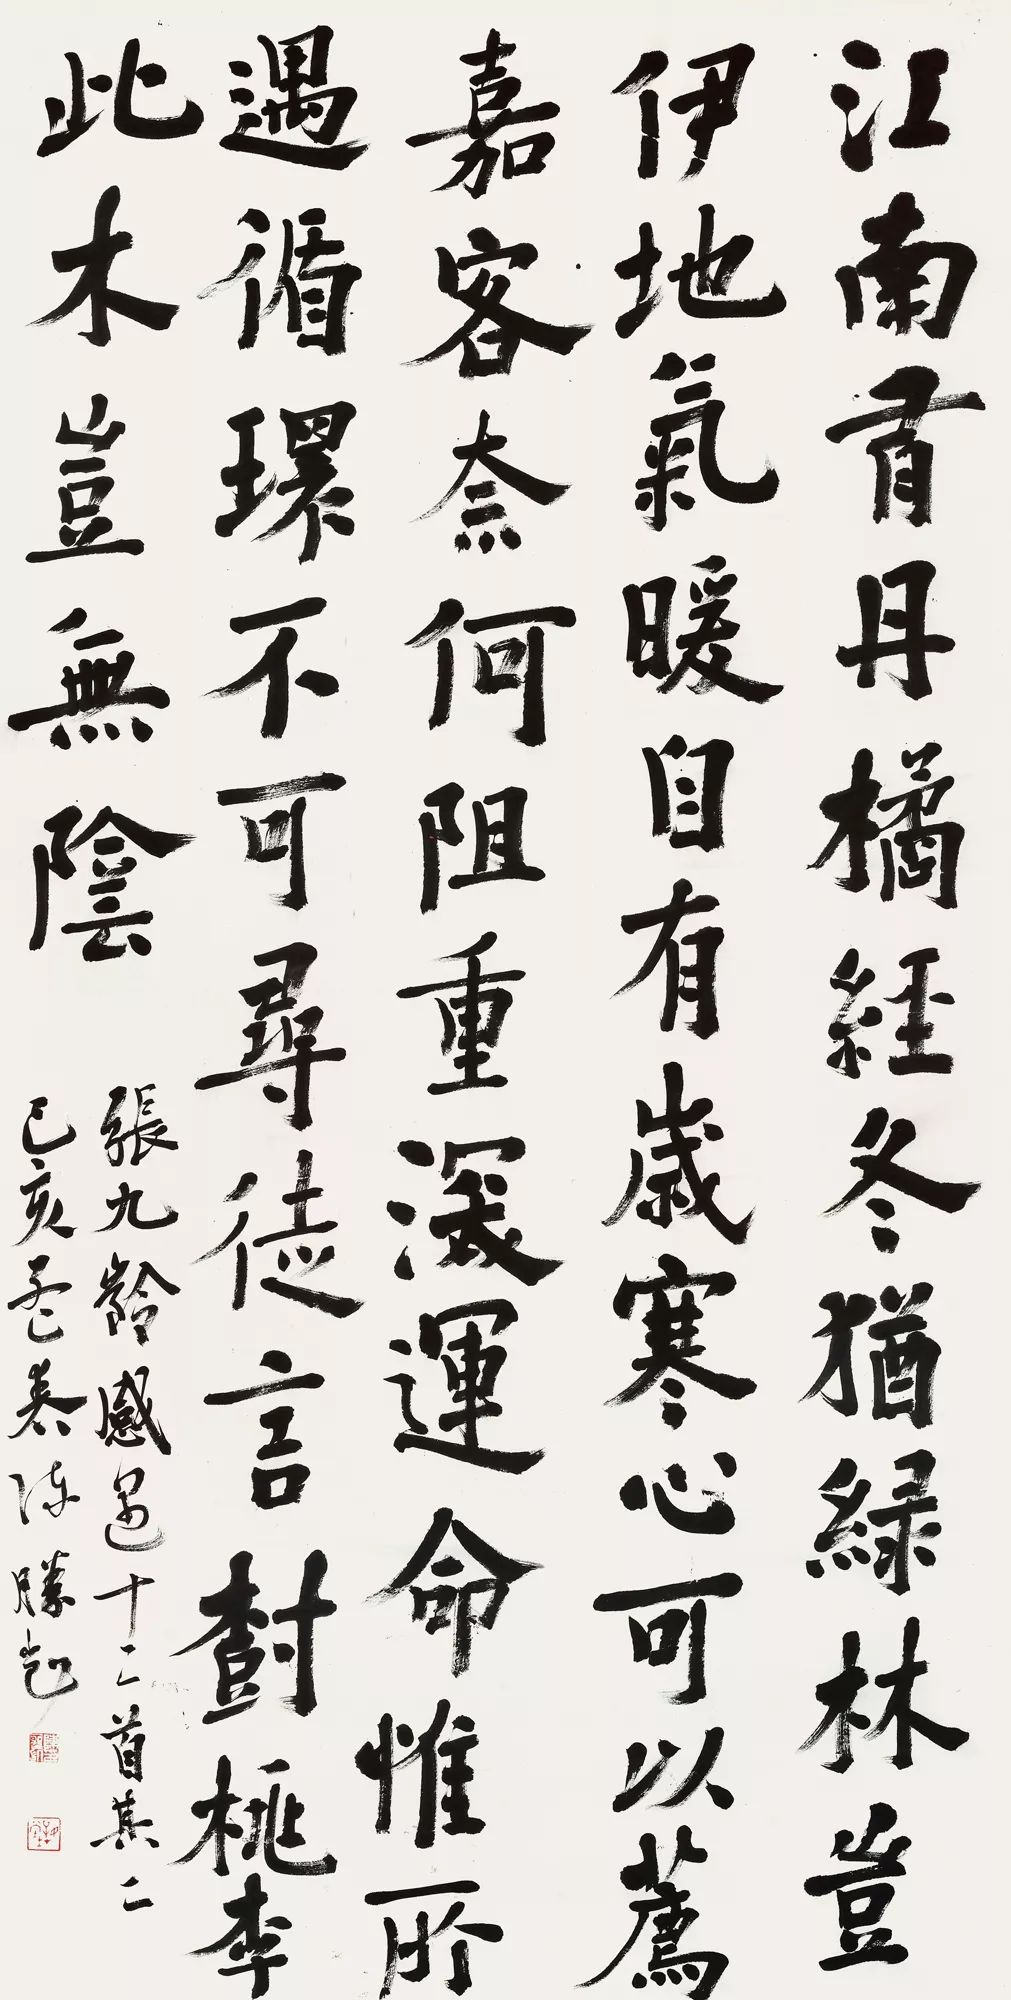 江南有丹橘經冬猶緑林豈
伊地氣暖自有歲寒心可以薦
嘉客奈何阻重深運命惟所
遇循環不可尋徒言樹桃李
此木豈無陰
張九齡感遇十二首其二
己亥孟春陳勝起